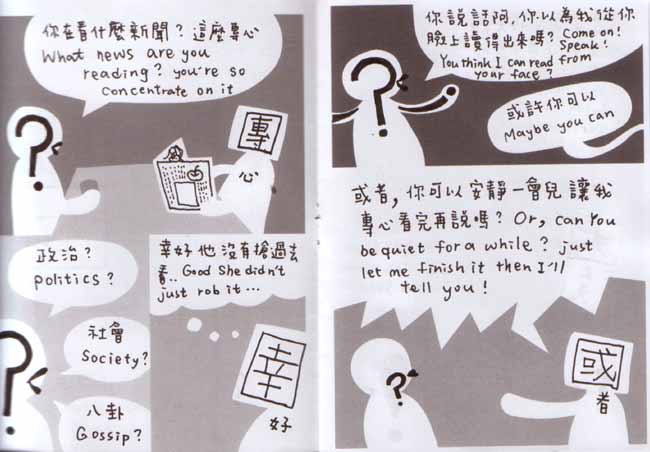 你在看什麼新聞？這麼專心
What news are you
reading? you're so
concentrate on it
?
專
心
政治？
politics?
社會
Society?
八卦
Gossip?
?
幸好他沒有搶過去
看.. Good She didn't
just rob it...
幸
好
你說話阿，你以為我從你
臉上讀得出來嗎？Come on!
Speak!
You think I can read from
your face?
?
或許你可以
Maybe you can
或者，你可以安靜一會兒讓我
專心看完再說嗎？Or, can You
be quiet for a while? just
let me finish it then I'll
tell you!
?
或
者